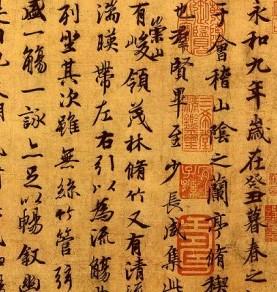 永和九年歲在癸丑暮春之
于會稽山陰之蘭亭脩禊
也羣賢畢至少長咸集此
有崇山峻領茂林脩竹又有清流
湍暎帶左右引以為流觴
列坐其次雖無絲竹管弦
盛一觴一詠亦足以暢敘幽